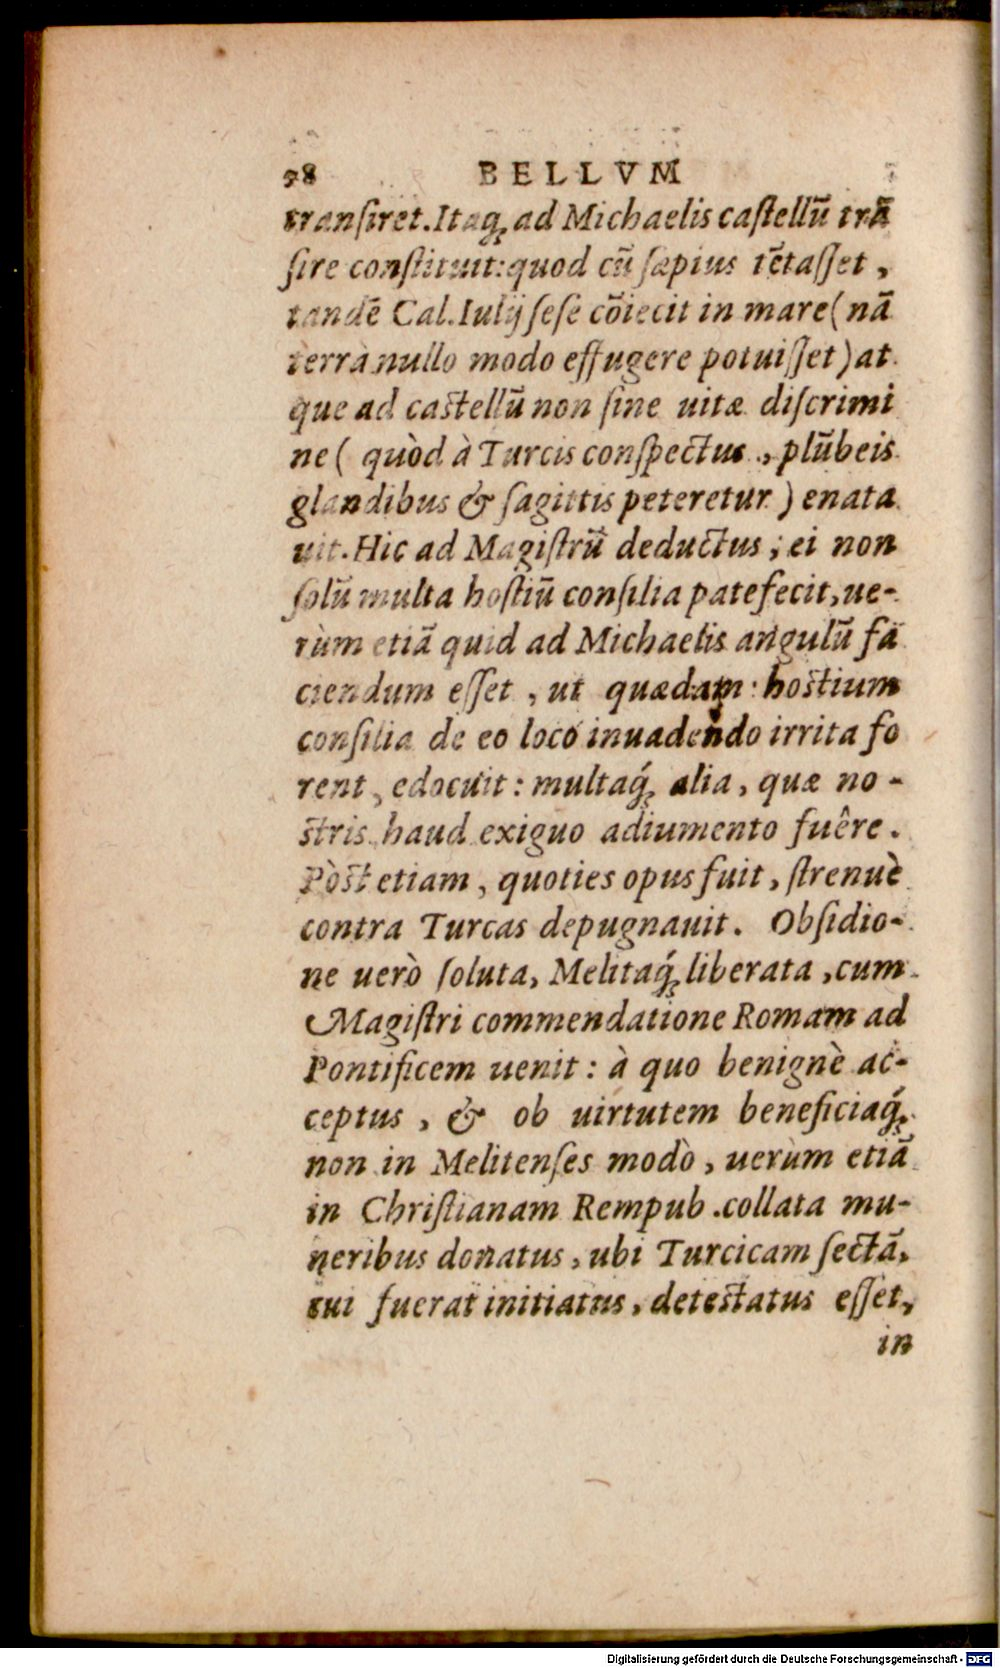 98 BELLVM
transiret. Itaq; ad Michaelis castellũ trã
sire constituit: quod cũ sæpius tẽtasset,
tandẽ Cal. Iulij sese cõiecit in mare (nã
terra nullo modo effugere potuisset) at
que ad castellũ non sine uitæ discrimi
ne ( quòd à Turcis conspectus, plũbeis
glandibus & sagittis peteretur ) enata
uit. Hic ad Magistrũ deductus, ei non
solũ multa hostiũ consilia patefecit, ue-
rùm etiã quid ad Michaelis angulũ fa
ciendum esset, ut quædam hostium
consilia de eo loco inuadendo irrita fo
rent, edocuit: multaq́; alia, quæ no-
stris haud exiguo adiumento fuêre.
Pòst etiam, quoties opus fuit, strenuè
contra Turcas depugnauit. Obsidio-
ne uerò soluta, Melitaq́; liberata, cum
Magistri commendatione Romam ad
Pontificem uenit: à quo benignè ac-
ceptus, & ob uirtutem beneficiaq́;
non in Melitenses modò, uerùm etiã
in Christianam Rempub. collata mu-
neribus donatus, ubi Turcicam sectã,
cui fuerat initiatus, detestatus esset,
in
Digitalisierung gefördert durch die Deutsche Forschungsgemeinschaft - DFG